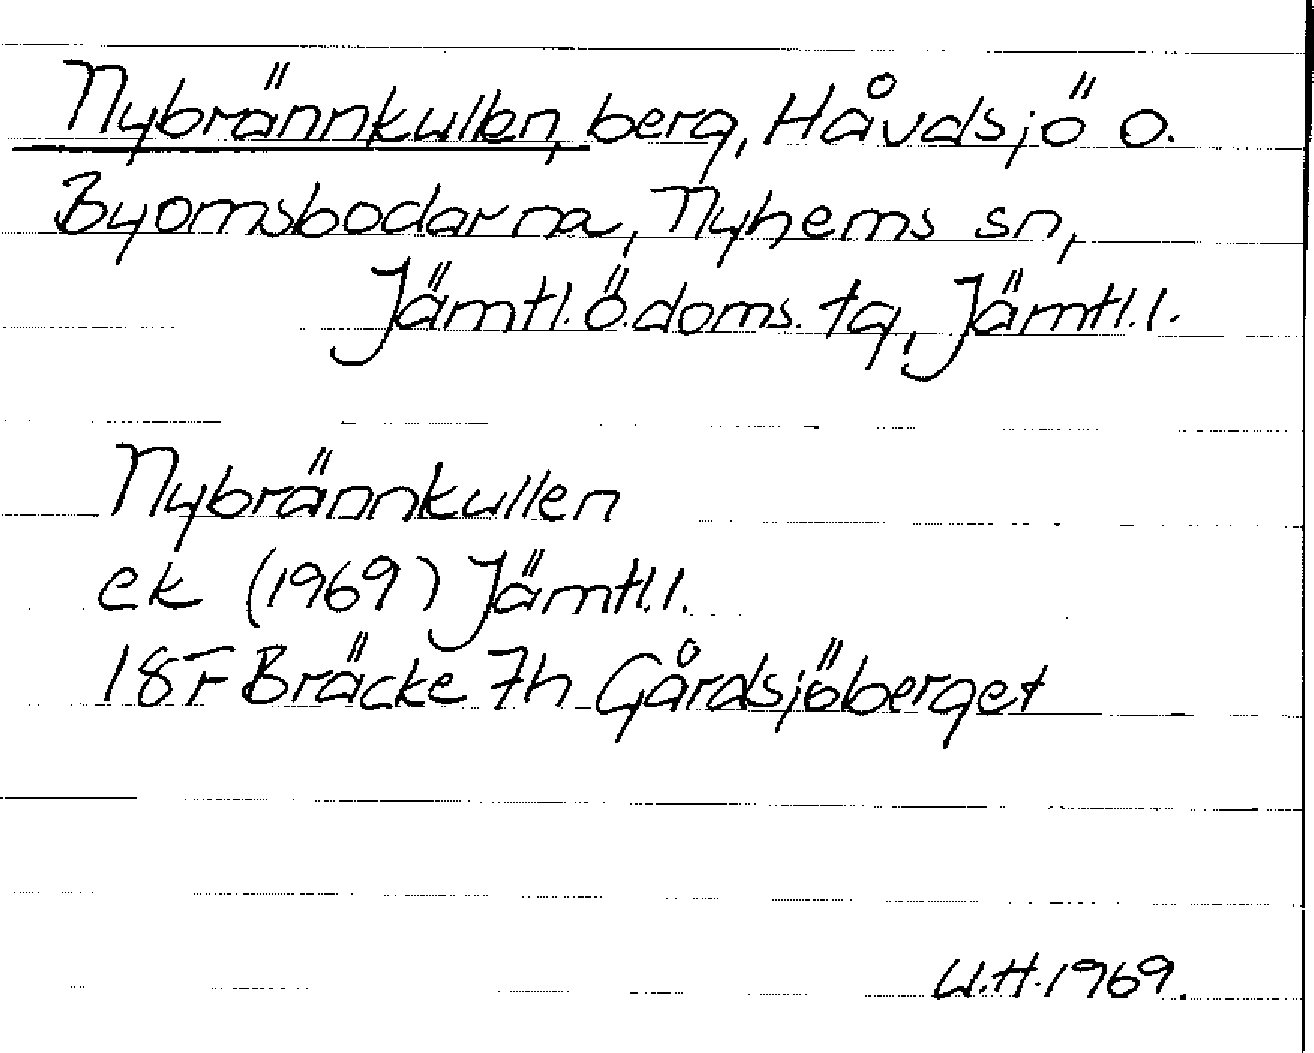 Nybrännkullen, berg, Håvdsjö o.
Byomsbodarna, Nyhems sn,
Jämtl. ö. doms. tg, Jämtl. l.
Nybrännkullen
ek (1969) Jämtl. l.
18F Bräcke 7h Gårdsjöberget
U.H. 1969.